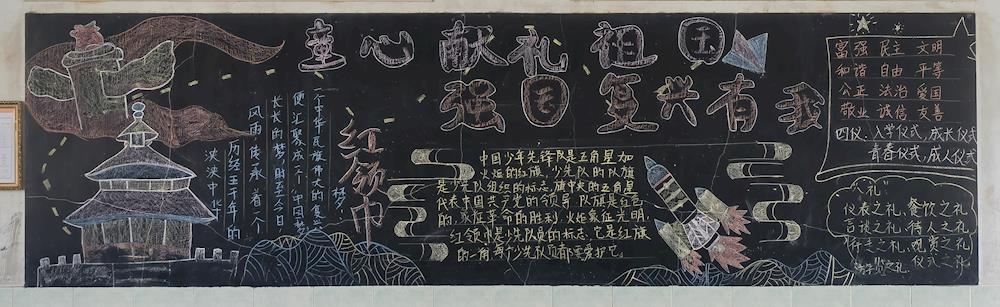 童心献礼祖国
强国复兴有我
红领巾
泱泱中华
历经五千年的
风雨,传承着一个
长长的梦,时至今日,
便汇聚成一个"中国梦
一个中华民族伟大的复兴
梦,
中国少年先锋队是五角星加
火炬的红旗,少先队的队旗
是少先队组织的标志,旗中央的五角星
代表中国共产党的领导,队旗是红色
的,象征革命的胜利,火炬象征光明,
红领巾是少先队员的标志,它是红旗
的一角,每个少先队员都需爱护它。
富强 民主 文明
和谐 自由 平等
公正 法治 爱国
敬业 诚信 友善
四仪 入学仪式,成长仪式
青春仪式,成人仪式
"八礼"
仪表之礼、餐饮之礼
言谈之礼、待人之礼
行走之礼、观赏之礼
游览之礼、仪式之礼